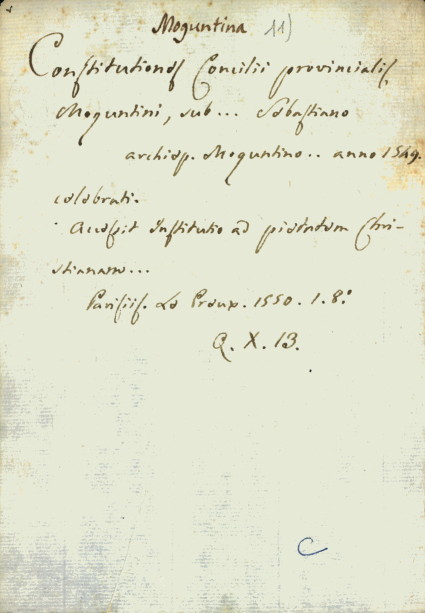 Moguntina 11)
Constitutiones Concilii provincialis
Moguntini, sub... Sebastiano
archiep. Moguntino.. anno 1549.
celebrati.
Accessit Institutio ad pietatem Chri-
stianam...
Parisiis. Le Preux. 1550. 1. 8°
Q. X. 13.
C